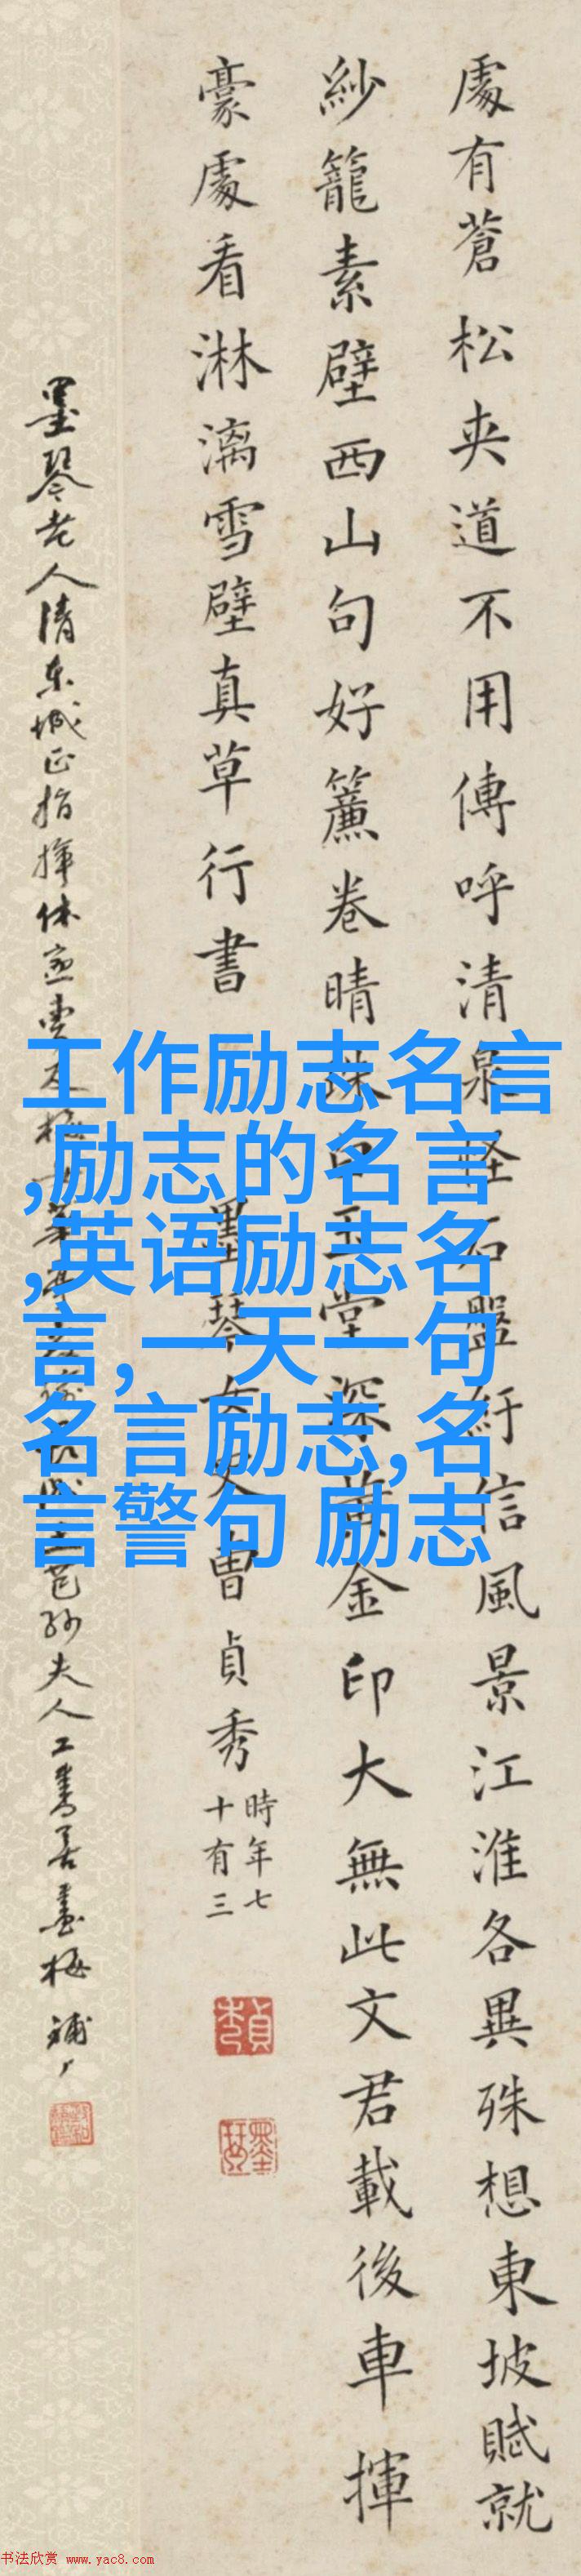 處有蒼松夾道不用傳呼清泉怪石盤紆信風景江淮各異殊想東坡賦就
紗籠素壁西山句好簾卷晴珠白玉堂深黃金印大無此文君載後車揮
豪處看淋漓雪壁真草行書
墨琴女史曹貞秀
時年七
十有三
墨琴老人清東城正指揮
夫人工書善畫梅
工作励志名言
,励志的名言
,英语励志名
言,一天一句
名言励志,名
言警句 励志
书法欣赏 www.yac8.com